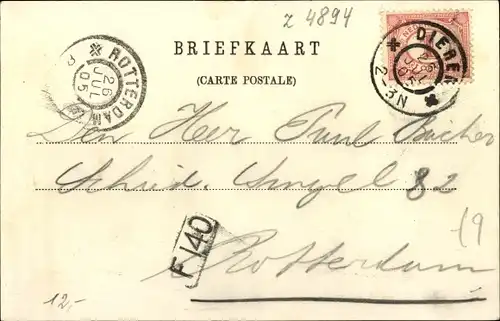 z 4894
BRIEFKAART
(CARTE POSTALE)
ROTTERDAM
26 JUL 05
DIEREN
2-3N
Den Heer Paul
Schied. Singel 82
19
F 140
Rotterdam
12,-